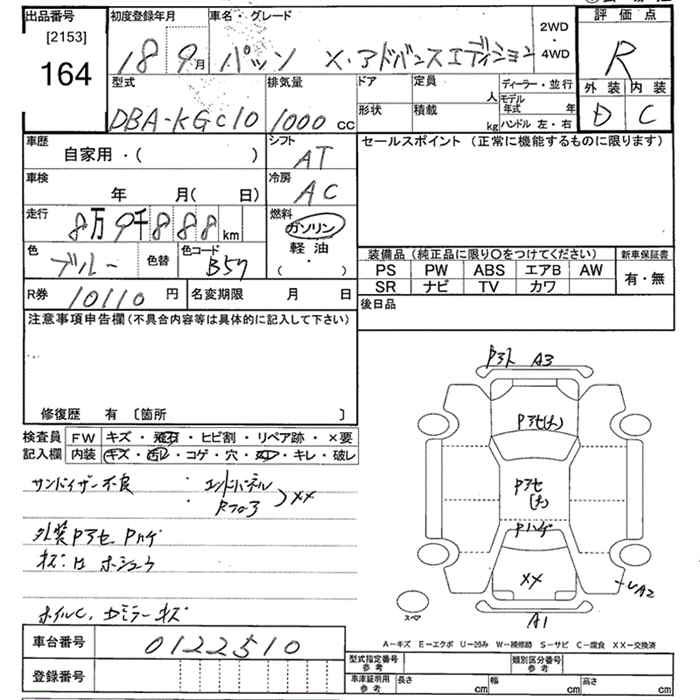 出品番号
[2153]
164
初度登録年月
18 9月
車名・グレード
パッソ X・アドバンスエディション
2WD
・
4WD
評価点
R
外装 内装
D C
型式
DBA-KGC10
排気量
1000 cc
ドア
定員
人
ディーラー・並行
形状
積載
kg
モデル年式 年
ハンドル 左・右
車歴
自家用・( )
シフト
AT
セールスポイント (正常に機能するものに限ります)
車検
年 月( 日)
冷房
AC
走行
8万9千888km
燃料
ガソリン
軽油
・
( )
色
ブルー
色替
色コード
B57
装備品(純正品に限り○をつけてください)
新車保証書
PS PW ABS エアB AW
SR ナビ TV カワ
有・無
R券
10110円
名変期限 月 日
後日品
注意事項申告欄(不具合内容等は具体的に記入して下さい)
修復歴 有 〔箇所 〕
検査員
記入欄
FW キズ・飛石・ヒビ割・リペア跡・×要
内装 キズ・汚レ・コゲ・穴・・キレ・破レ
サンバイザー不良
エンドパネル
Rフロア
XX
外装Pアセ Pハゲ
キズ:凹 ホシュウ
ホイルC、ドミラーキズ
車台番号
0122510
登録番号
Pアト A3
Pアセ(大)
Pアセ
(大)
Pハゲ
XX
UA2
A1
スペア
A-キズ E-エクボ U-凹み W-補修跡 S-サビ C-腐食 XX-交換済
型式指定番号
参考
類別区分番号
参考
車庫証明用
参考
長さ cm
幅 cm
高さ cm